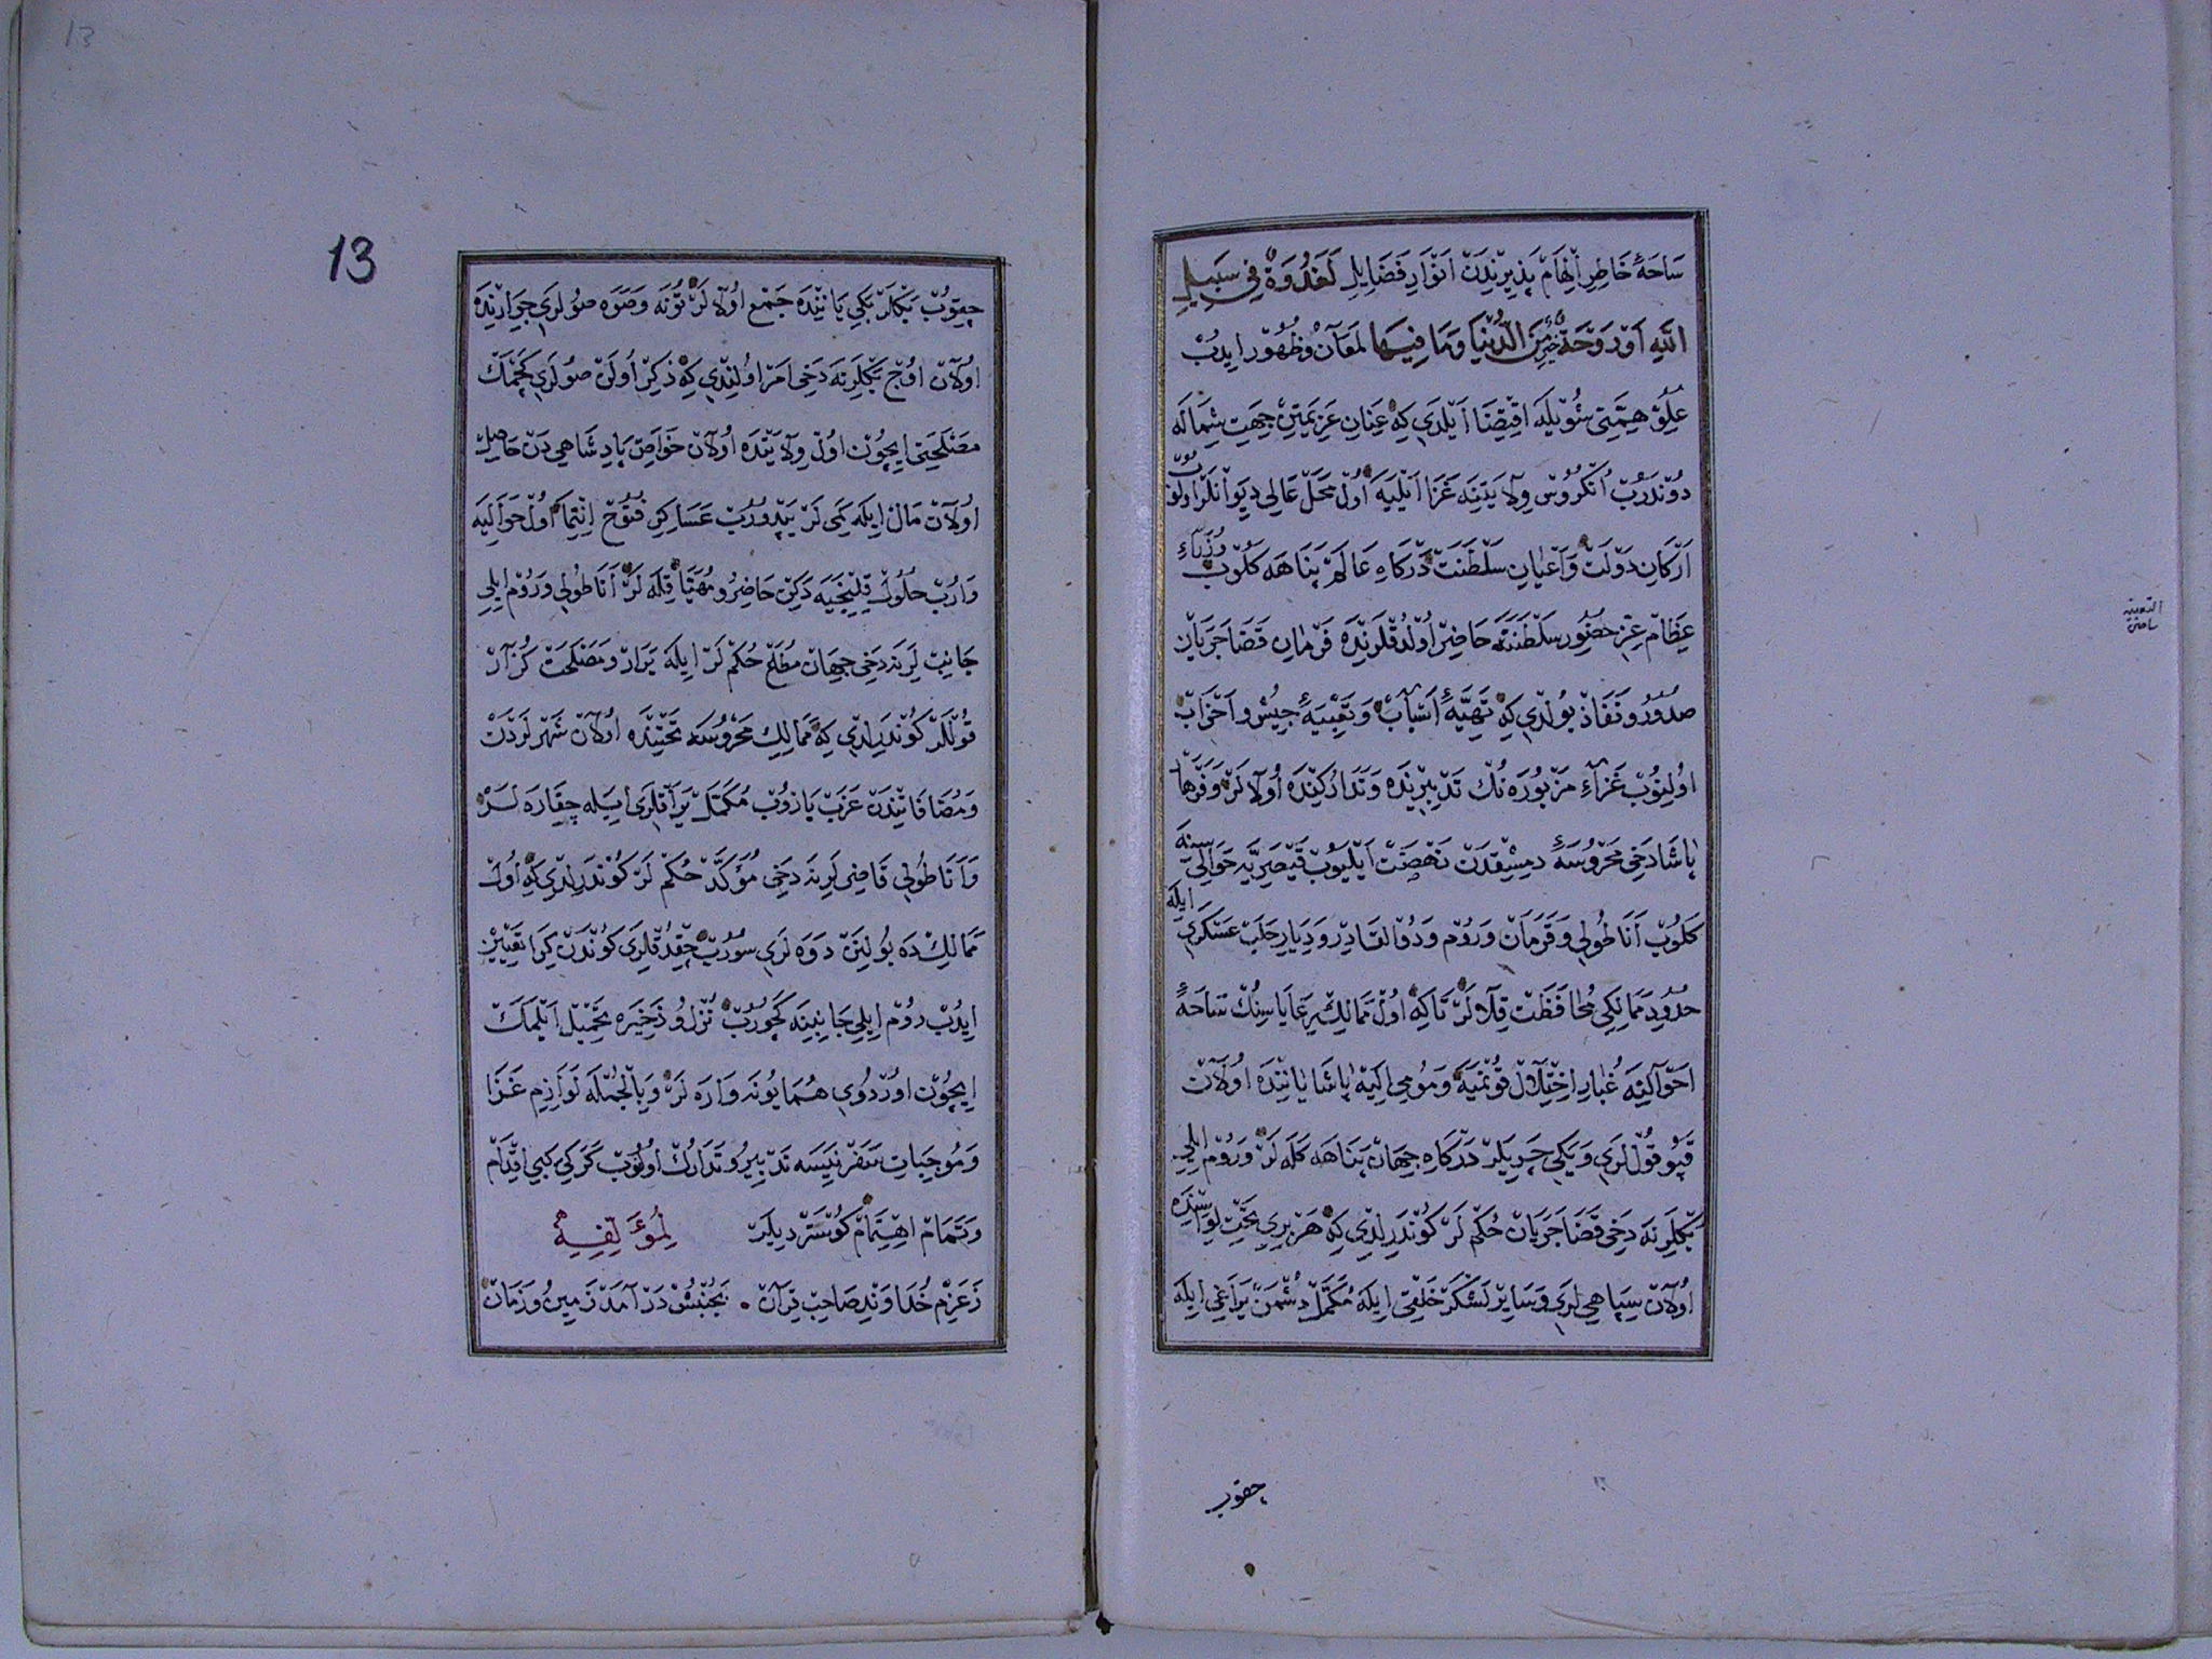 سَاحَهٔ خَاطِرِ اِلْهَامْ پَذِيرِنْدَنْ اَنْوَارِ فَضَايِلِ لَغَدْوَةٌ فِي سَبِيلِ
اللّٰهِ اَوْ رَوْحَةٌ خَيْرٌ مِنَ الدُّنْيَا وَمَا فِيهَا لَمَعَانْ وَظُهُورْ ايدُبْ
عُلُوِّ هِمَّتِى شُويْلَه اقْتِضَا اَيْلَدِي كِه عِنَانِ عَزِيمَتِنْ جِهَتِ شِمَالَه
دُونْدَرُبْ اُنْكُرُوسْ وِلَايَتِنَه غَزَا اَيْلَيَه اُولْ مَحَلّْ عَالِي دِيوَانْلَرْ اولنوب
اَرْكَانِ دَوْلَتْ وَاَعْيَانِ سَلْطَنَتْ دَرْكَاهِ عَالَمْ پَنَاهَه كَلُوبْ وُزَرَاءِ
عِظَامْ عِزِّ حضُورِ سَلْطَنَتَه حَاضِرْ اُولْدُقْلَرِنْدَه فَرْمَانِ قَضَا جَرَيَانْ
صُدُورْ وَنَفَاذْ بُولْدِي كِه تَهِيَّهٔ اَسْبَابْ وَتَعْبِيَهٔ جِيُوشْ وَاَحْزَابْ
اُولِنُوبْ غَزَاءِ مَزْبُورَه نُكْ تَدْبِيرِنْدَه وَتَدَارُكِنْدَه اُولَالَرْ وَفَرْهَاد
پَاشَا دَخِى مَحْرُوسَهٔ دِمِشْقدَنْ نَهْضَتْ اَيْلَيُوبْ قَيْصَرِيَّه حَوَالِيسِنَه
كَلُوبْ اَنَاطُولِي وَقَرَمَانْ وَرُومْ وَذُوالقَادِرْ وَدِيَارِ حَلَبْ عَسْكَرِي ايلَه
حُدُودِ مَمَالِكِي مُحَافَظَتْ قِلَالَرْ تَاكِه اُولْ مَمَالِكْ رِعَايَاسِنُكْ سَاحَهٔ
اَحْوَالِنَه غُبَارِ اخْتِلَالْ قُونْمَيَه وَمُومى اِلَيْه پَاشَا يَانِنْدَه اُولَانْ
قَپُو قُولْلَرِي وَيَكِي چَرِيلَرْ دَرْكَاهِ جِهَانْ پَنَاهَه كَلَه لَرْ وَرُومْ اِيلِي
بَكْلَرِنَه دَخِى قَضَا جَرَيَانْ حُكْمْ لَرْ كُونْدَرِلْدِي كِه هَرْ بِرِي تَحْتِ لِوَاسِنْدَه
اُولَانْ سِپَاهِي لَرِي وَسَايِرْ لَشْكَرْ خَلْقِى ايلَه مُكَمَّلْ دُشْمَنْ يَرَاغِى ايلَه
چقوب
13
چِقوُبْ بَكْلَرْ بَكِي يَانِنْدَه جَمْع اُولَالَرْ تُونَه وَصَوَه صُولَرِي جِوَارِنْدَه
اُولَانْ اوُجْ بَكْلَرِنَه دَخِى اَمْر اوُلِنْدِي كِه ذِكْرْ اُولَنْ صُولَرِي كَچْمَكْ
مَصْلَحَتِى ايچُونْ اوُلْ وِلَايَتْدَه اُولَانْ خَوَاصِّ پَادِشَاهِي دَنْ حَاصِلْ
اُولَانْ مَالْ ايلَه كَمِى لَرْ يَپْدُرُبْ عَسَاكِرِ فُتُوحْ اِنْتِمَا اُولْ حَوَالِيَه
وَارُبْ حُلُولْ قِلِنْجَيَه دَكِنْ حَاضِرْ و مُهَيَّا قِلَه لَرْ اَنَاطُولِي وَرُومْ اِيلِي
جَانِبْ لَرِنَه دَخِى جِهَانْ مُطَاعْ حُكْمْ لَرْ ايلَه يَرَارْ وَمَصْلَحَتْ كُزَارْ
قُولْلَرْ كُونْدَرِلْدِي كِه مَمَالِكِ مَحْرُوسَه تَحْتِنْدَه اُولَانْ شَهْرلَرْدَنْ
وَمُضَافَاتِنْدَنْ عَزَبْ يَازُوبْ مُكَمَّلْ يَرَاقلَرِى ايلَه چِقَارَه لَرْ
وَاَنَاطُولِي قَاضِى لَرِنَه دَخِى مُؤَكَّدْ حُكْمْ لَرْ كُونْدَرِلْدِي كِه اُولْ
مَمَالِكْ دَه بُولِنَنْ دَوَه لَرِي سُورُبْ چِقَرُدُقلَرِى كُونْدَنْ كِرَا تَعْيِينْ
ايدُبْ رُومْ اِيلِي جَانِبِنَه كَچُورُبْ نُزُلْ و ذَخِيرَه تَحْمِيلْ اَيْلَمَكْ
ايچُونْ اوُرْدُوي هُمَايُونَه وَارَه لَرْ وَبِالْجُمْلَه لَوَازِمِ غَزَا
وَمُوجِبَاتِ سَفَرْ نَيْسَه تَدْبِيرْ و تَدَارُكْ اوُلُنُوبْ كَرَكِى كِبِي اِقْدَامْ
وَتَمَامْ اهْتِمَامْ كُوسْتَرْدِيلَرْ لِمُؤَلِّفِهِ
زَعَزْمِ خُدَاوَنْدِ صَاحِبْ قِرَانْ . بَجُنْبِشْ دَرْ آمَدْ زَمِينْ و زَمَانْ